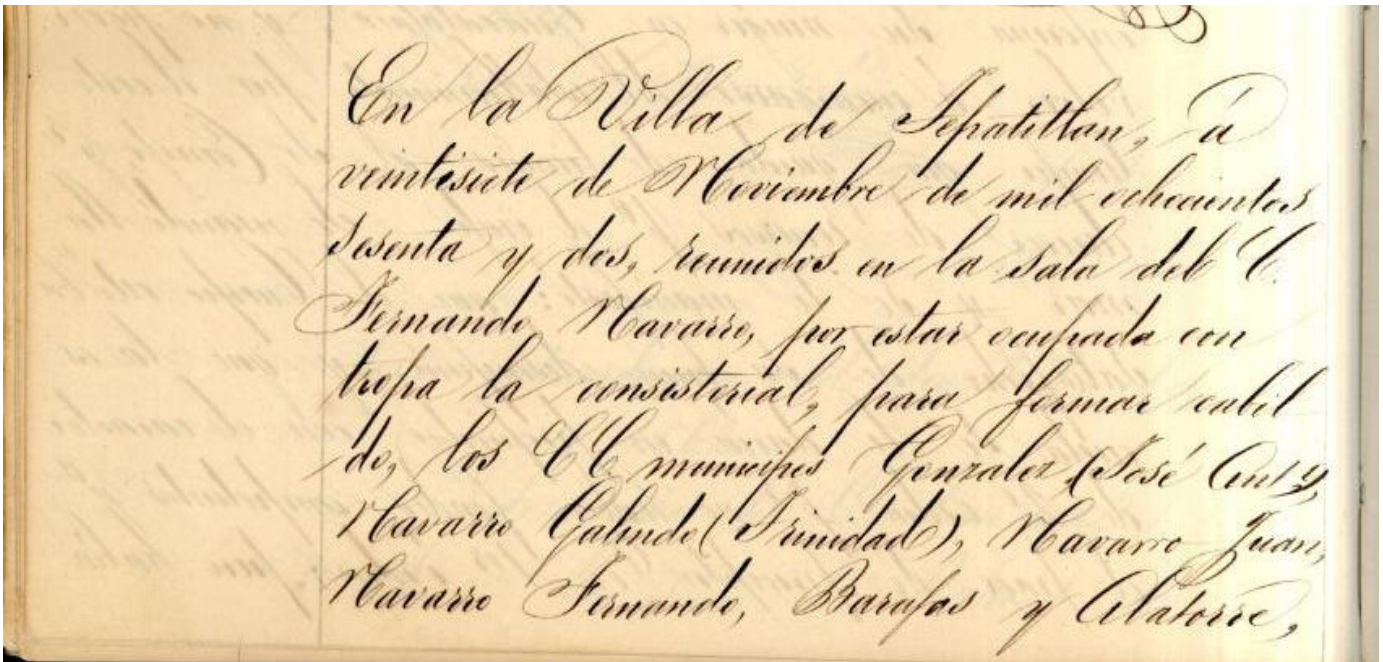 En la Villa de Tepatitlan, á
veintisiete de Noviembre de mil ochocientos
sesenta y dos, reunidos en la sala del C.
Fernando Navarro, por estar ocupada con
tropa la consistorial, para formar cabil
do, los CC municipes Gonzalez (José Anto),
Navarro Galindo (Trinidad), Navarro Juan,
Navarro Fernando, Barajas y Alatorre,